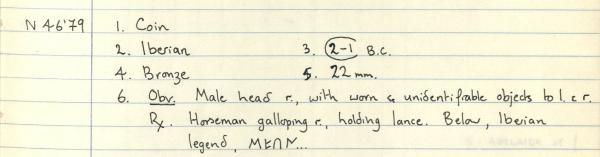 N 46'79 1. Coin
2. Iberian 3. 2-1 B.C.
4. Bronze 5. 22 mm.
6. Obv. Male head r., with worn & unidentifiable objects to l. & r.
Rx. Horseman galloping r., holding lance. Below, Iberian
legend,